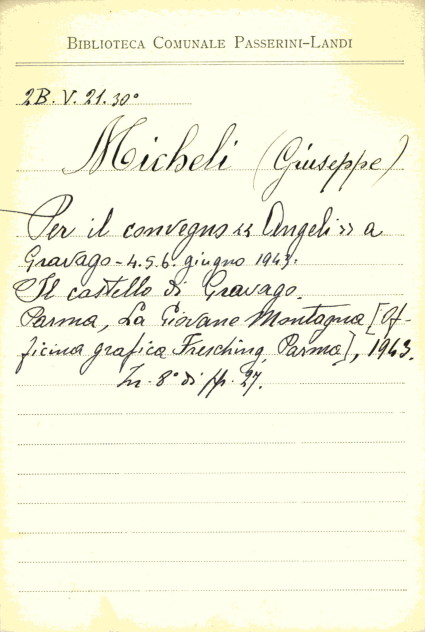 BIBLIOTECA COMUNALE PASSERINI-LANDI
2B. V. 21. 30°
Micheli (Giuseppe)
Per il convegno « Angeli » a
Gravago - 4.5.6. giugno 1943.
Il castello di Gravago.
Parma, La Giovane Montagna [Of-
ficina grafica Fresching, Parma], 1943.
In- 8° di pp. 27.